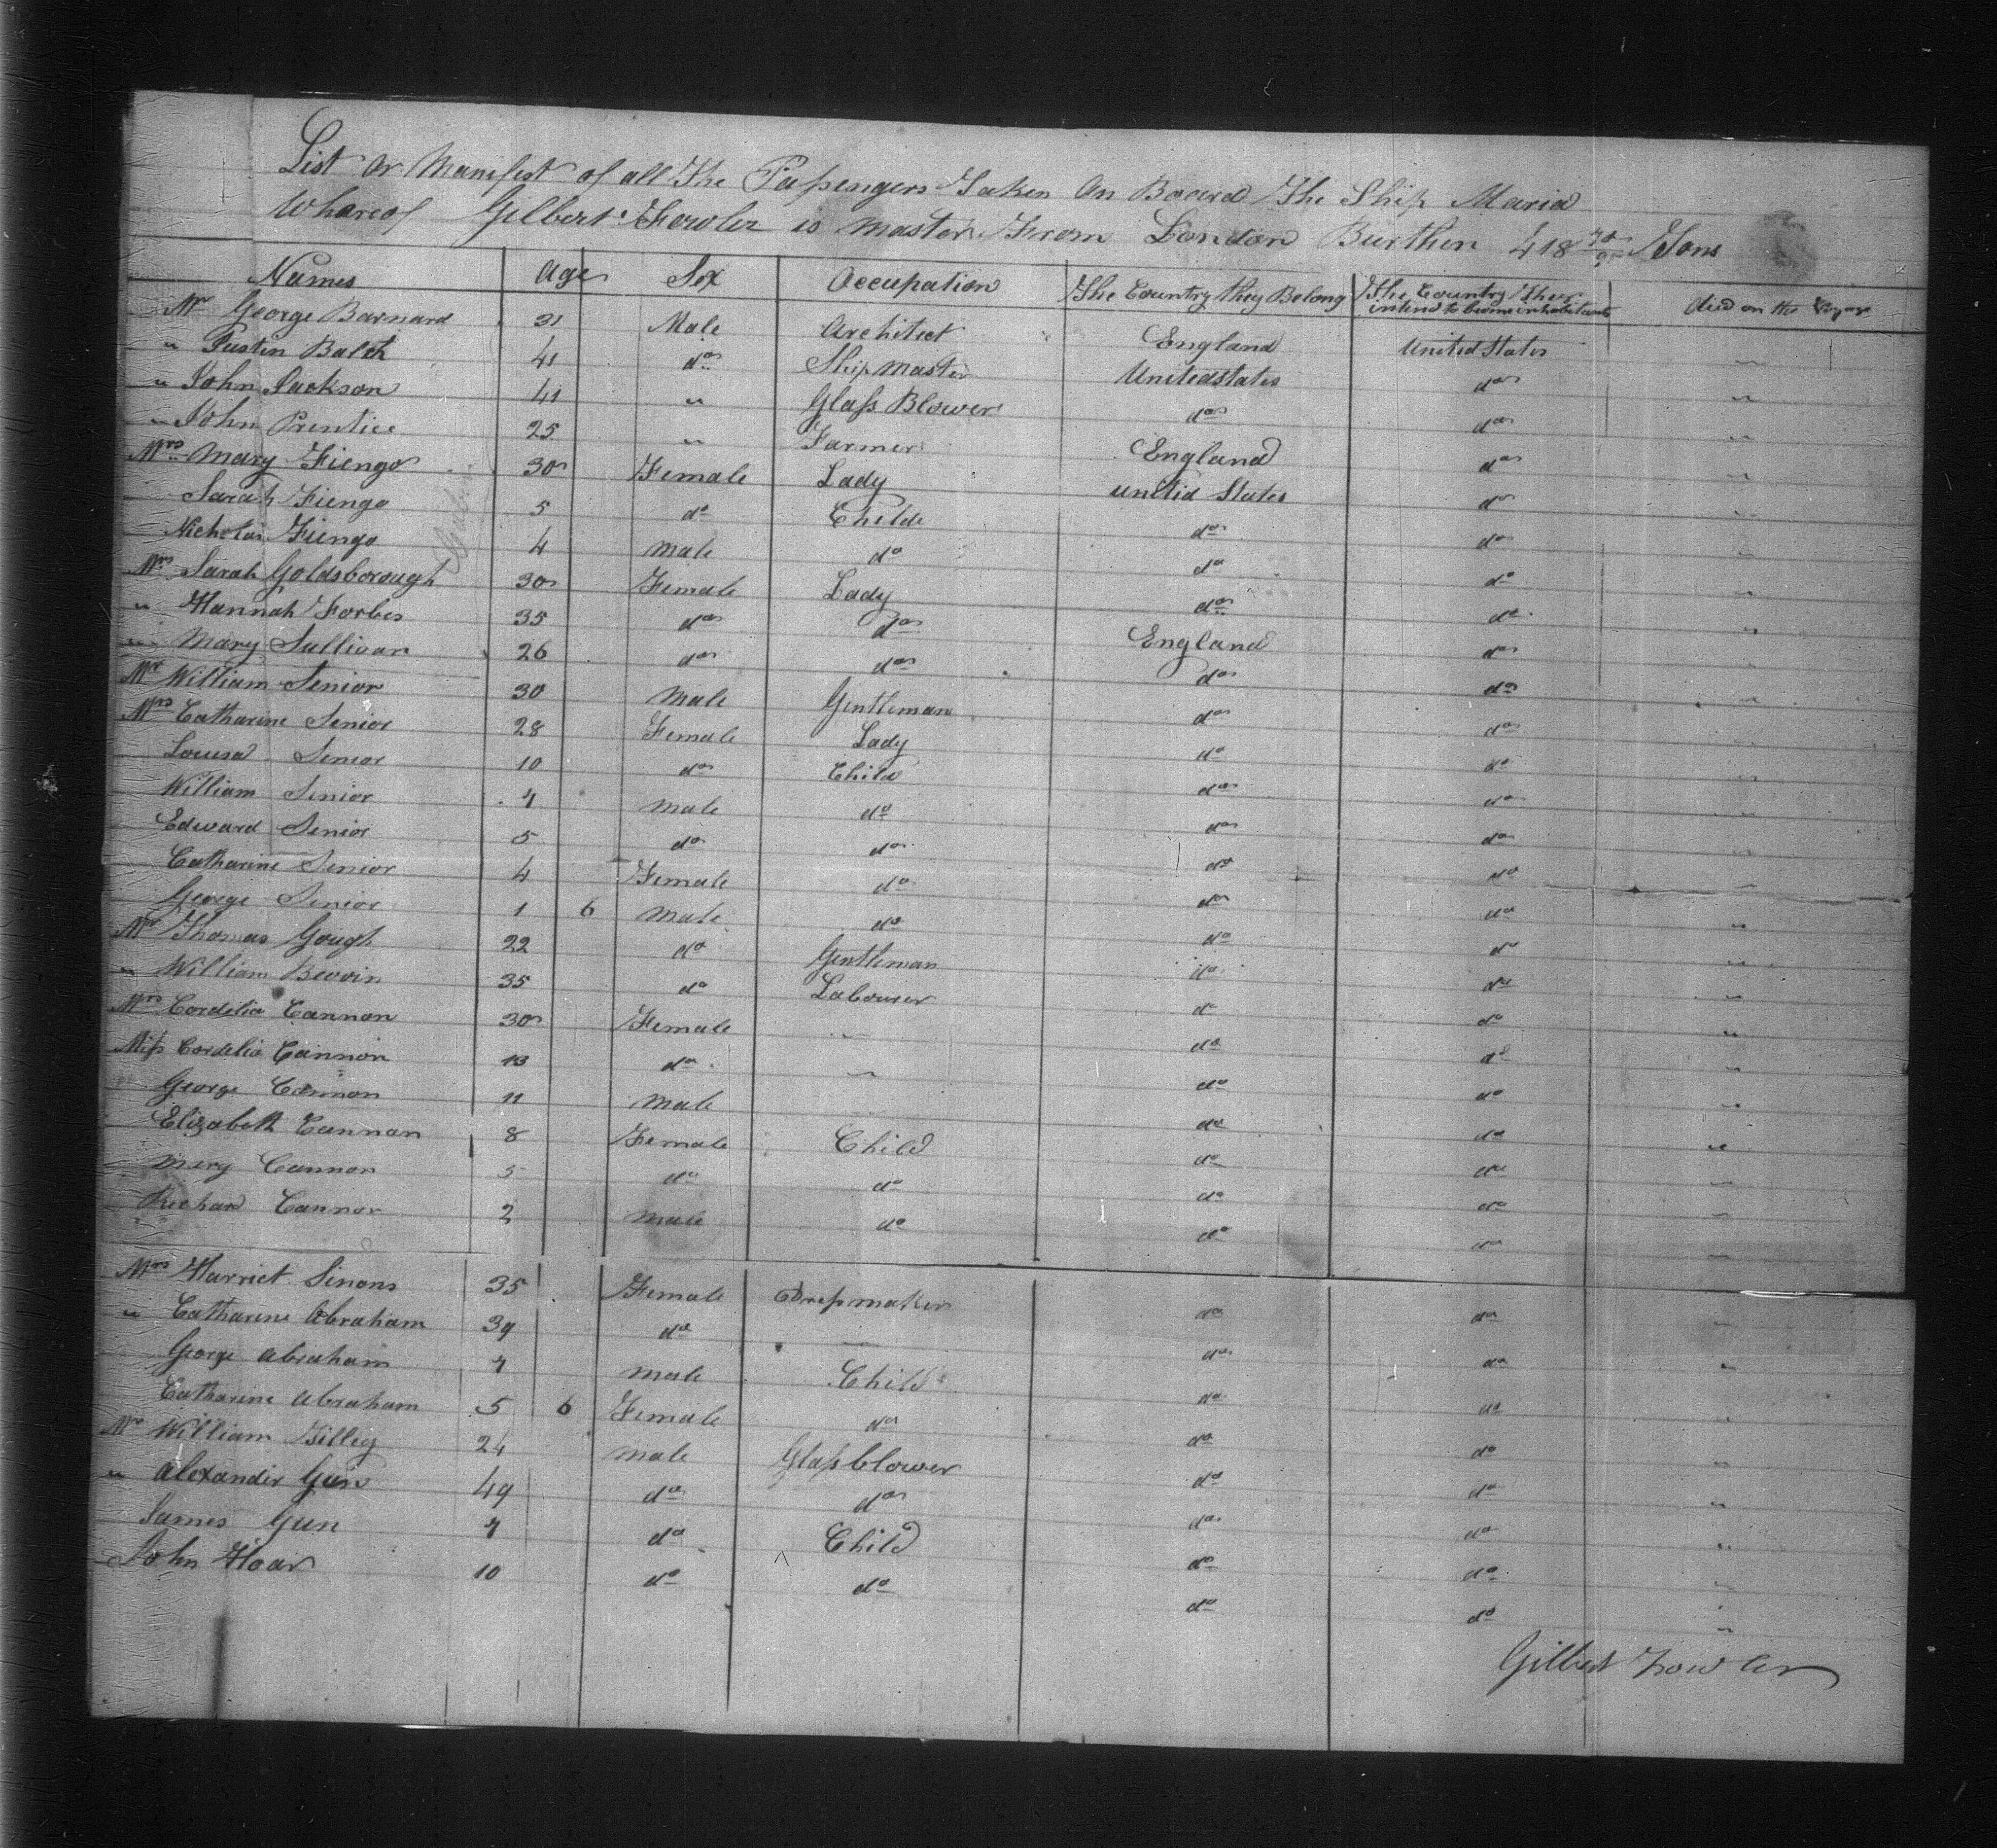 List or Manifest of all The Passengers Taken On Board The Ship Maria
Whareof Gilbert Fowler is Master From London Burthen 418 Tons
Names Age Sex Occupation The Country they Belong The Country they intend to become inhabitants died on the Voyage
Mr George Barnard 31 Male Architect England United States "
" Balch 41 do Ship Master United states do "
" John Jackson 41 " Glass Blower do do "
" John Prentice 25 " Farmer England do "
Mrs Mary Fiengo 30 Female Lady united States do "
Sarah Fiengo 5 do Childe do do "
Nicholas Fiengo 4 male do do do "
Mrs Sarah Goldsborough 30 Female Lady do do "
" Hannah Forbes 35 do do England do "
" Mary Sullivan 26 do do do do "
Mr William Senior 30 Male Gentleman do do "
Mrs Catharine Senior 28 Female Lady do do "
Louisa Senior 10 do Child do do "
William Senior 7 male do do do "
Edward Senior 5 do do do do "
Catharine Senior 4 Female do do do "
George Senior 1 6 Male do do do "
Mr Thomas Gough 22 do Gentleman do do "
" William 35 do Labourer do do "
Mrs Cordelia Cannon 30 Female " do do "
Miss Cordelia Cannon 13 do " do do "
George Cannon 11 male do do "
Elizabeth Cannon 8 Female Child do do "
Mary Cannon 5 do do do do "
Richard Cannon 2 male do do do "
Mrs Harriet Simons 35 Female Dressmaker do do "
" Catharine Abraham 39 do " do do "
George Abraham 7 male Child do do "
Catharine Abraham 5 6 Female do do do "
Mr William 24 male Glassblower do do "
" Alexander Gun 49 do do do do "
James Gun 7 do Child do do "
John Hoar 10 do do do do "
Gilbert Fowler